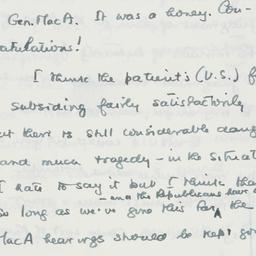 Gen. MacA. It was a honey. Con-
atulations!
I think the patient's (U.S.) f
subsiding fairly satisfactorily
ut there is still considerable dang
and much tragedy - in the situat
I hate to say it but I think tha
- and the Republicans have
so long as we've gone this far, the
MacA hearings should be kept go